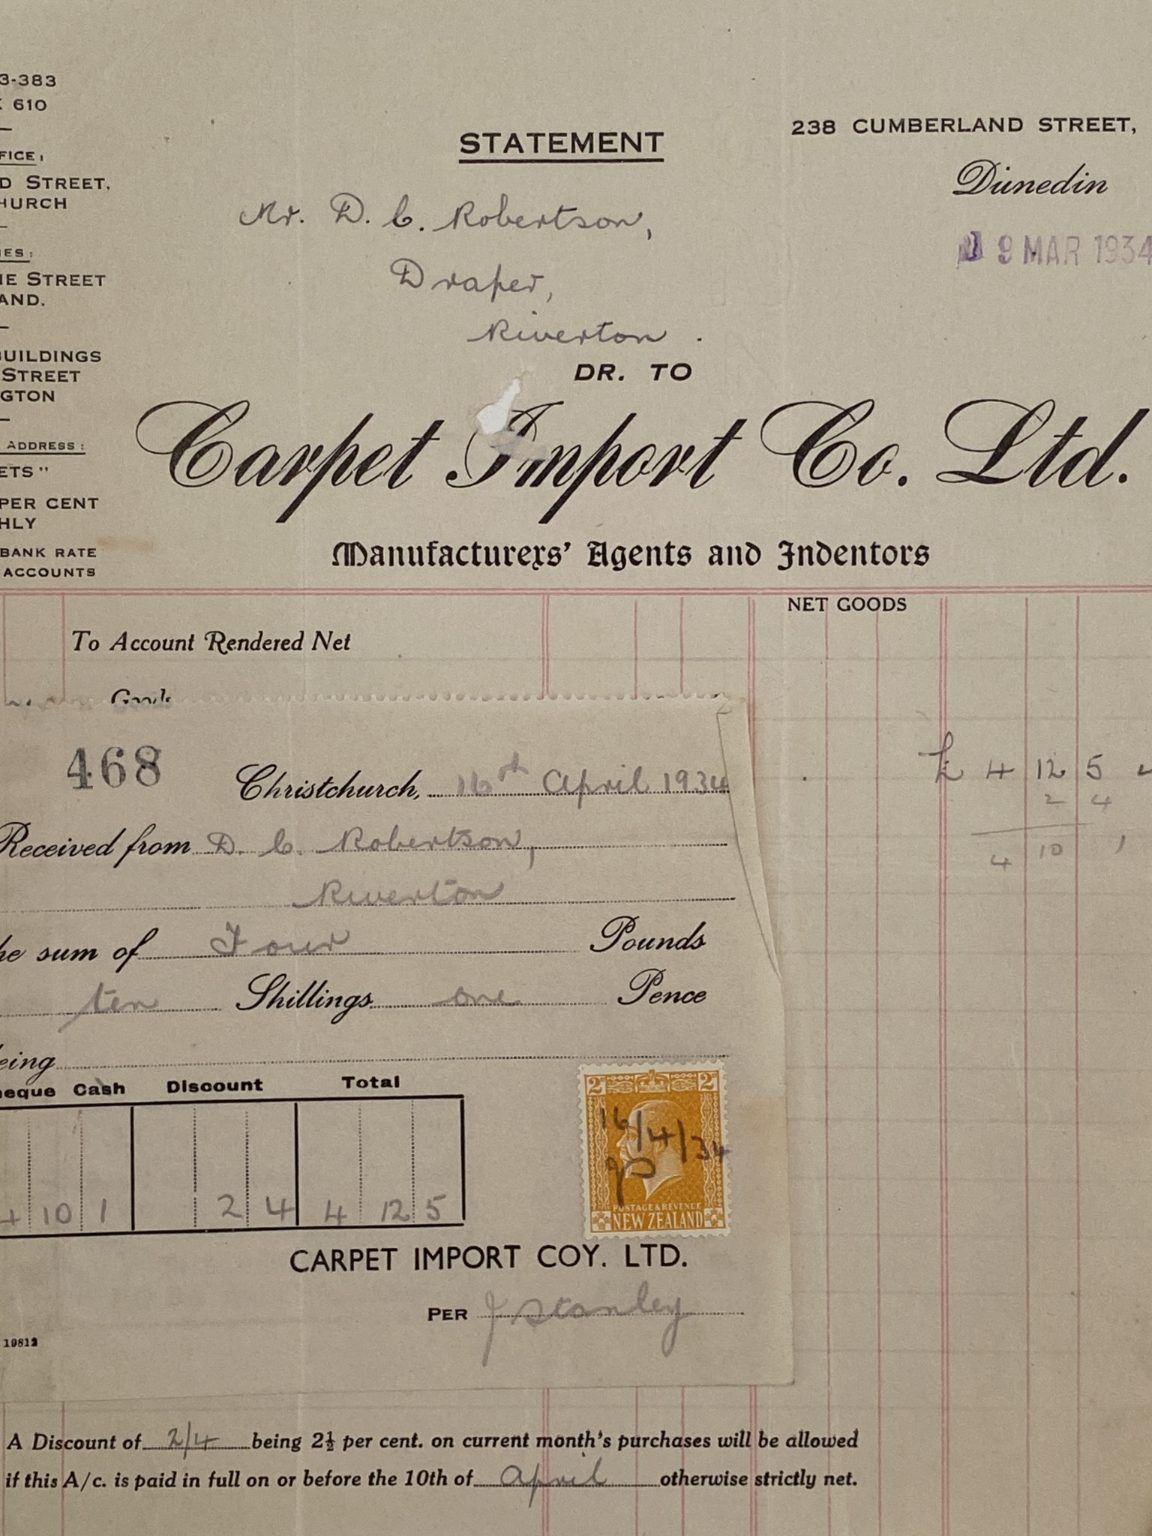 3-383
610
FICE:
D STREET,
HURCH
IES:
IE STREET
AND.
BUILDINGS
STREET
GTON
ADDRESS:
ETS"
PER CENT
HLY
BANK RATE
ACCOUNTS
STATEMENT
238 CUMBERLAND STREET,
Dunedin
9 MAR 1934
Mr. D. C. Robertson,
Draper,
Riverton.
DR. TO
Carpet Import Co. Ltd.
Manufacturers' Agents and Indentors
NET GOODS
To Account Rendered Net
Goods
£ 4 12 5
2 4
4 10 1
468
Christchurch, 16th April 1934
Received from D. C. Robertson,
Riverton
he sum of Four Pounds
ten Shillings one Pence
eing
heque Cash Discount Total
4 10 1 2 4 4 12 5
2 2
16/4/34
POSTAGE & REVENUE
NEW ZEALAND
CARPET IMPORT COY. LTD.
PER J Stanley
19812
A Discount of 2/4 being 2½ per cent. on current month's purchases will be allowed
if this A/c. is paid in full on or before the 10th of April otherwise strictly net.